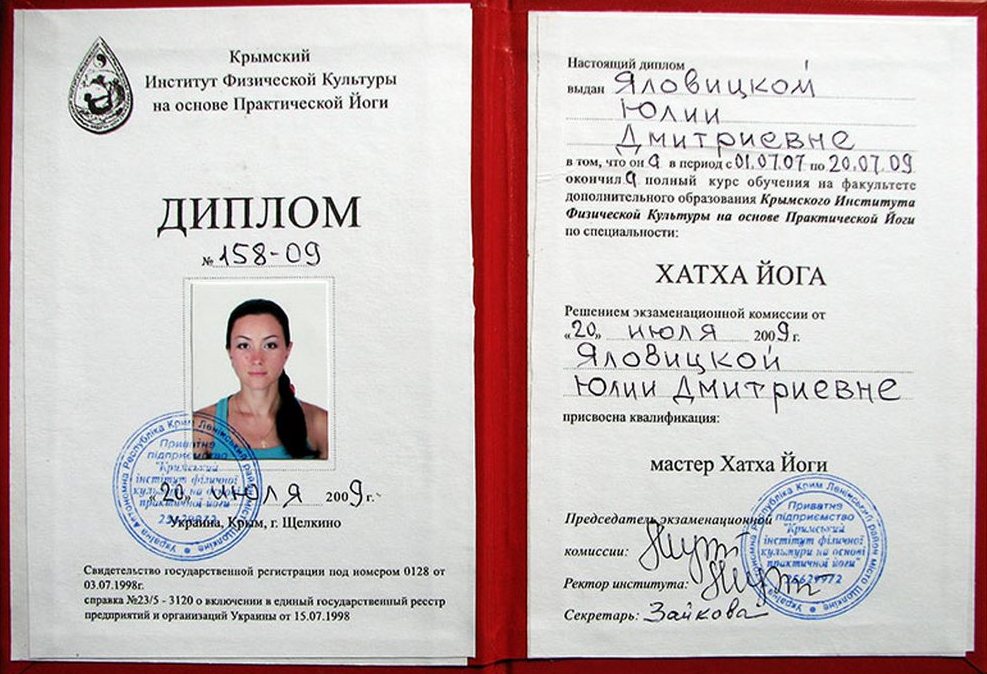 Крымский
Институт Физической Культуры
на основе Практической Йоги
ДИПЛОМ
№ 158-09
Автономна Республіка Крим Ленінський район місто Щолкіне
Україна
Приватне
підприємство
"Кримський
інститут фізичної
культури на основі
практичної йоги"
25629972
«20» июля 2009 г.
Украина, Крым, г. Щелкино
Свидетельство государственной регистрации под номером 0128 от
03.07.1998г.
справка №23/5 - 3120 о включении в единый государственный реестр
предприятий и организаций Украины от 15.07.1998
Настоящий диплом
выдан Яловицкой
Юлии
Дмитриевне
в том, что он а в период с 01.07.07 по 20.07.09
окончил а полный курс обучения на факультете
дополнительного образования Крымского Института
Физической Культуры на основе Практической Йоги
по специальности:
ХАТХА ЙОГА
Решением экзаменационной комиссии от
«20» июля 2009 г.
Яловицкой
Юлии Дмитриевне
присвосна квалификация:
мастер Хатха Йоги
Председатель экзаменационной
комиссии:
Ректор института:
Секретарь: Зайкова
Автономна Республіка Крим Ленінський район місто Щолкіне
Україна
Приватне
підприємство
"Кримський
інститут фізичної
культури на основі
практичної йоги"
25629972